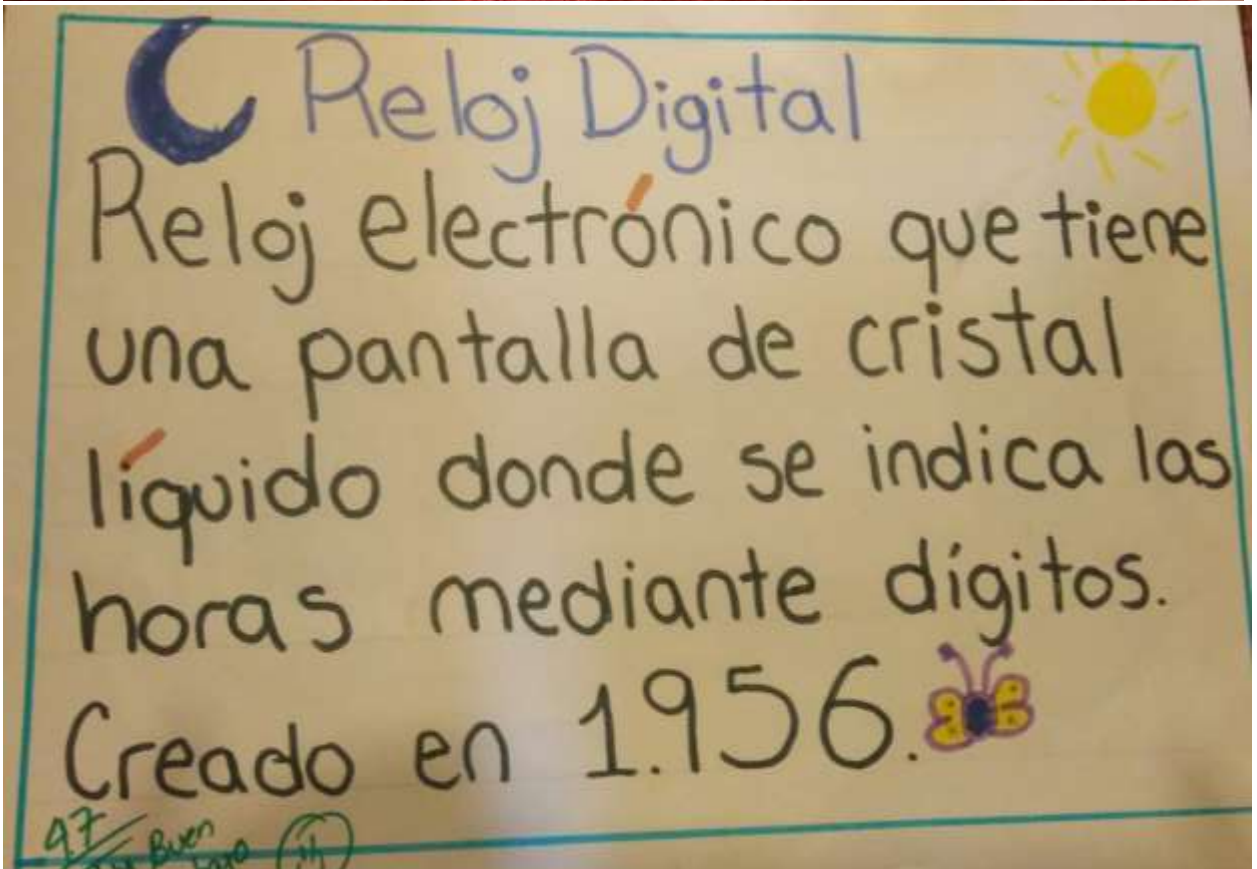 Reloj Digital
Reloj electrónico que tiene
una pantalla de cristal
líquido donde se indica las
horas mediante dígitos.
Creado en 1.956.
Buen